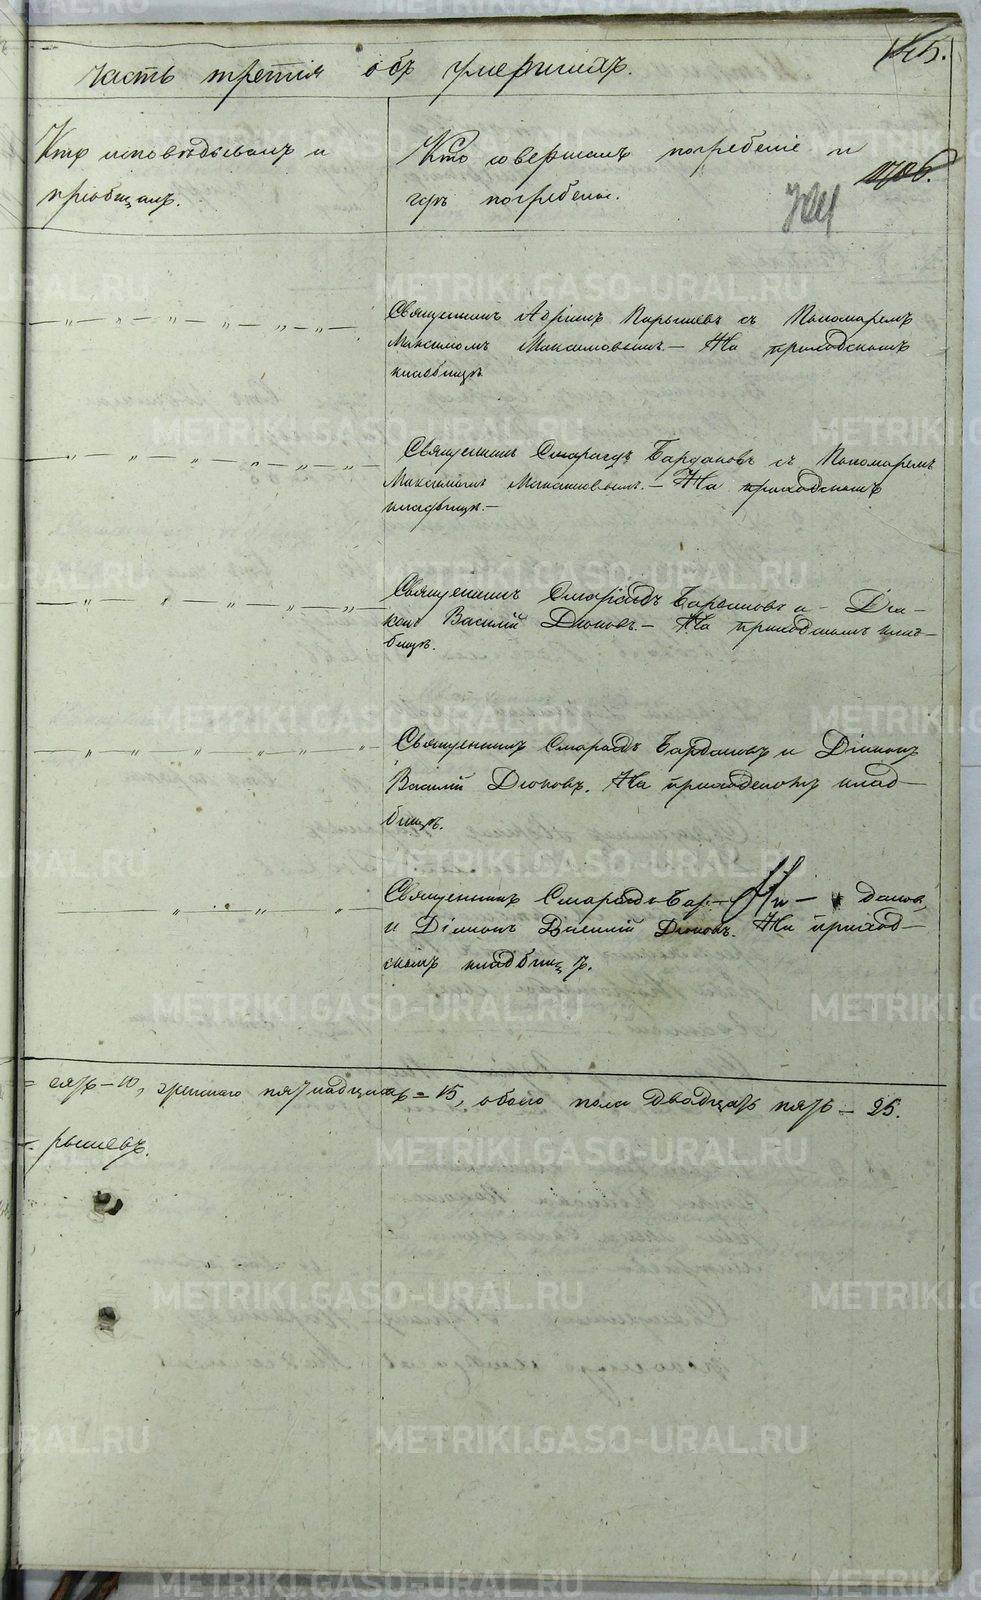 часть третія объ умершихъ.
Кто исповѣдывалъ и
пріобщалъ.
Кто совершалъ погребеніе и
гдѣ погребены.
Священникъ Адріанъ Парышевъ съ Пономаремъ
Максимомъ Максимовымъ. — На приходскомъ
кладбищѣ
Священникъ Смарагдъ Бардаковъ съ Пономаремъ
Максимомъ Максимовымъ. — На приходскомъ
кладбищѣ. —
Священникъ Смарагдъ и Діа-
конъ Василій Дюковъ. — На приходскомъ клад-
бищѣ.
Священникъ Смарагдъ и Діаконъ
Василій Дюковъ. На приходскомъ клад-
бищѣ.
Священникъ Смарагдъ Бар-
и Діаконъ Василій Дюковъ. На приход-
скомъ кладбищѣ.
= сять — 10, женскаго пятнадцать = 15, обоего пола двадцать пять — 25.
= рышевъ.
METRIKI.GASO-URAL.RU